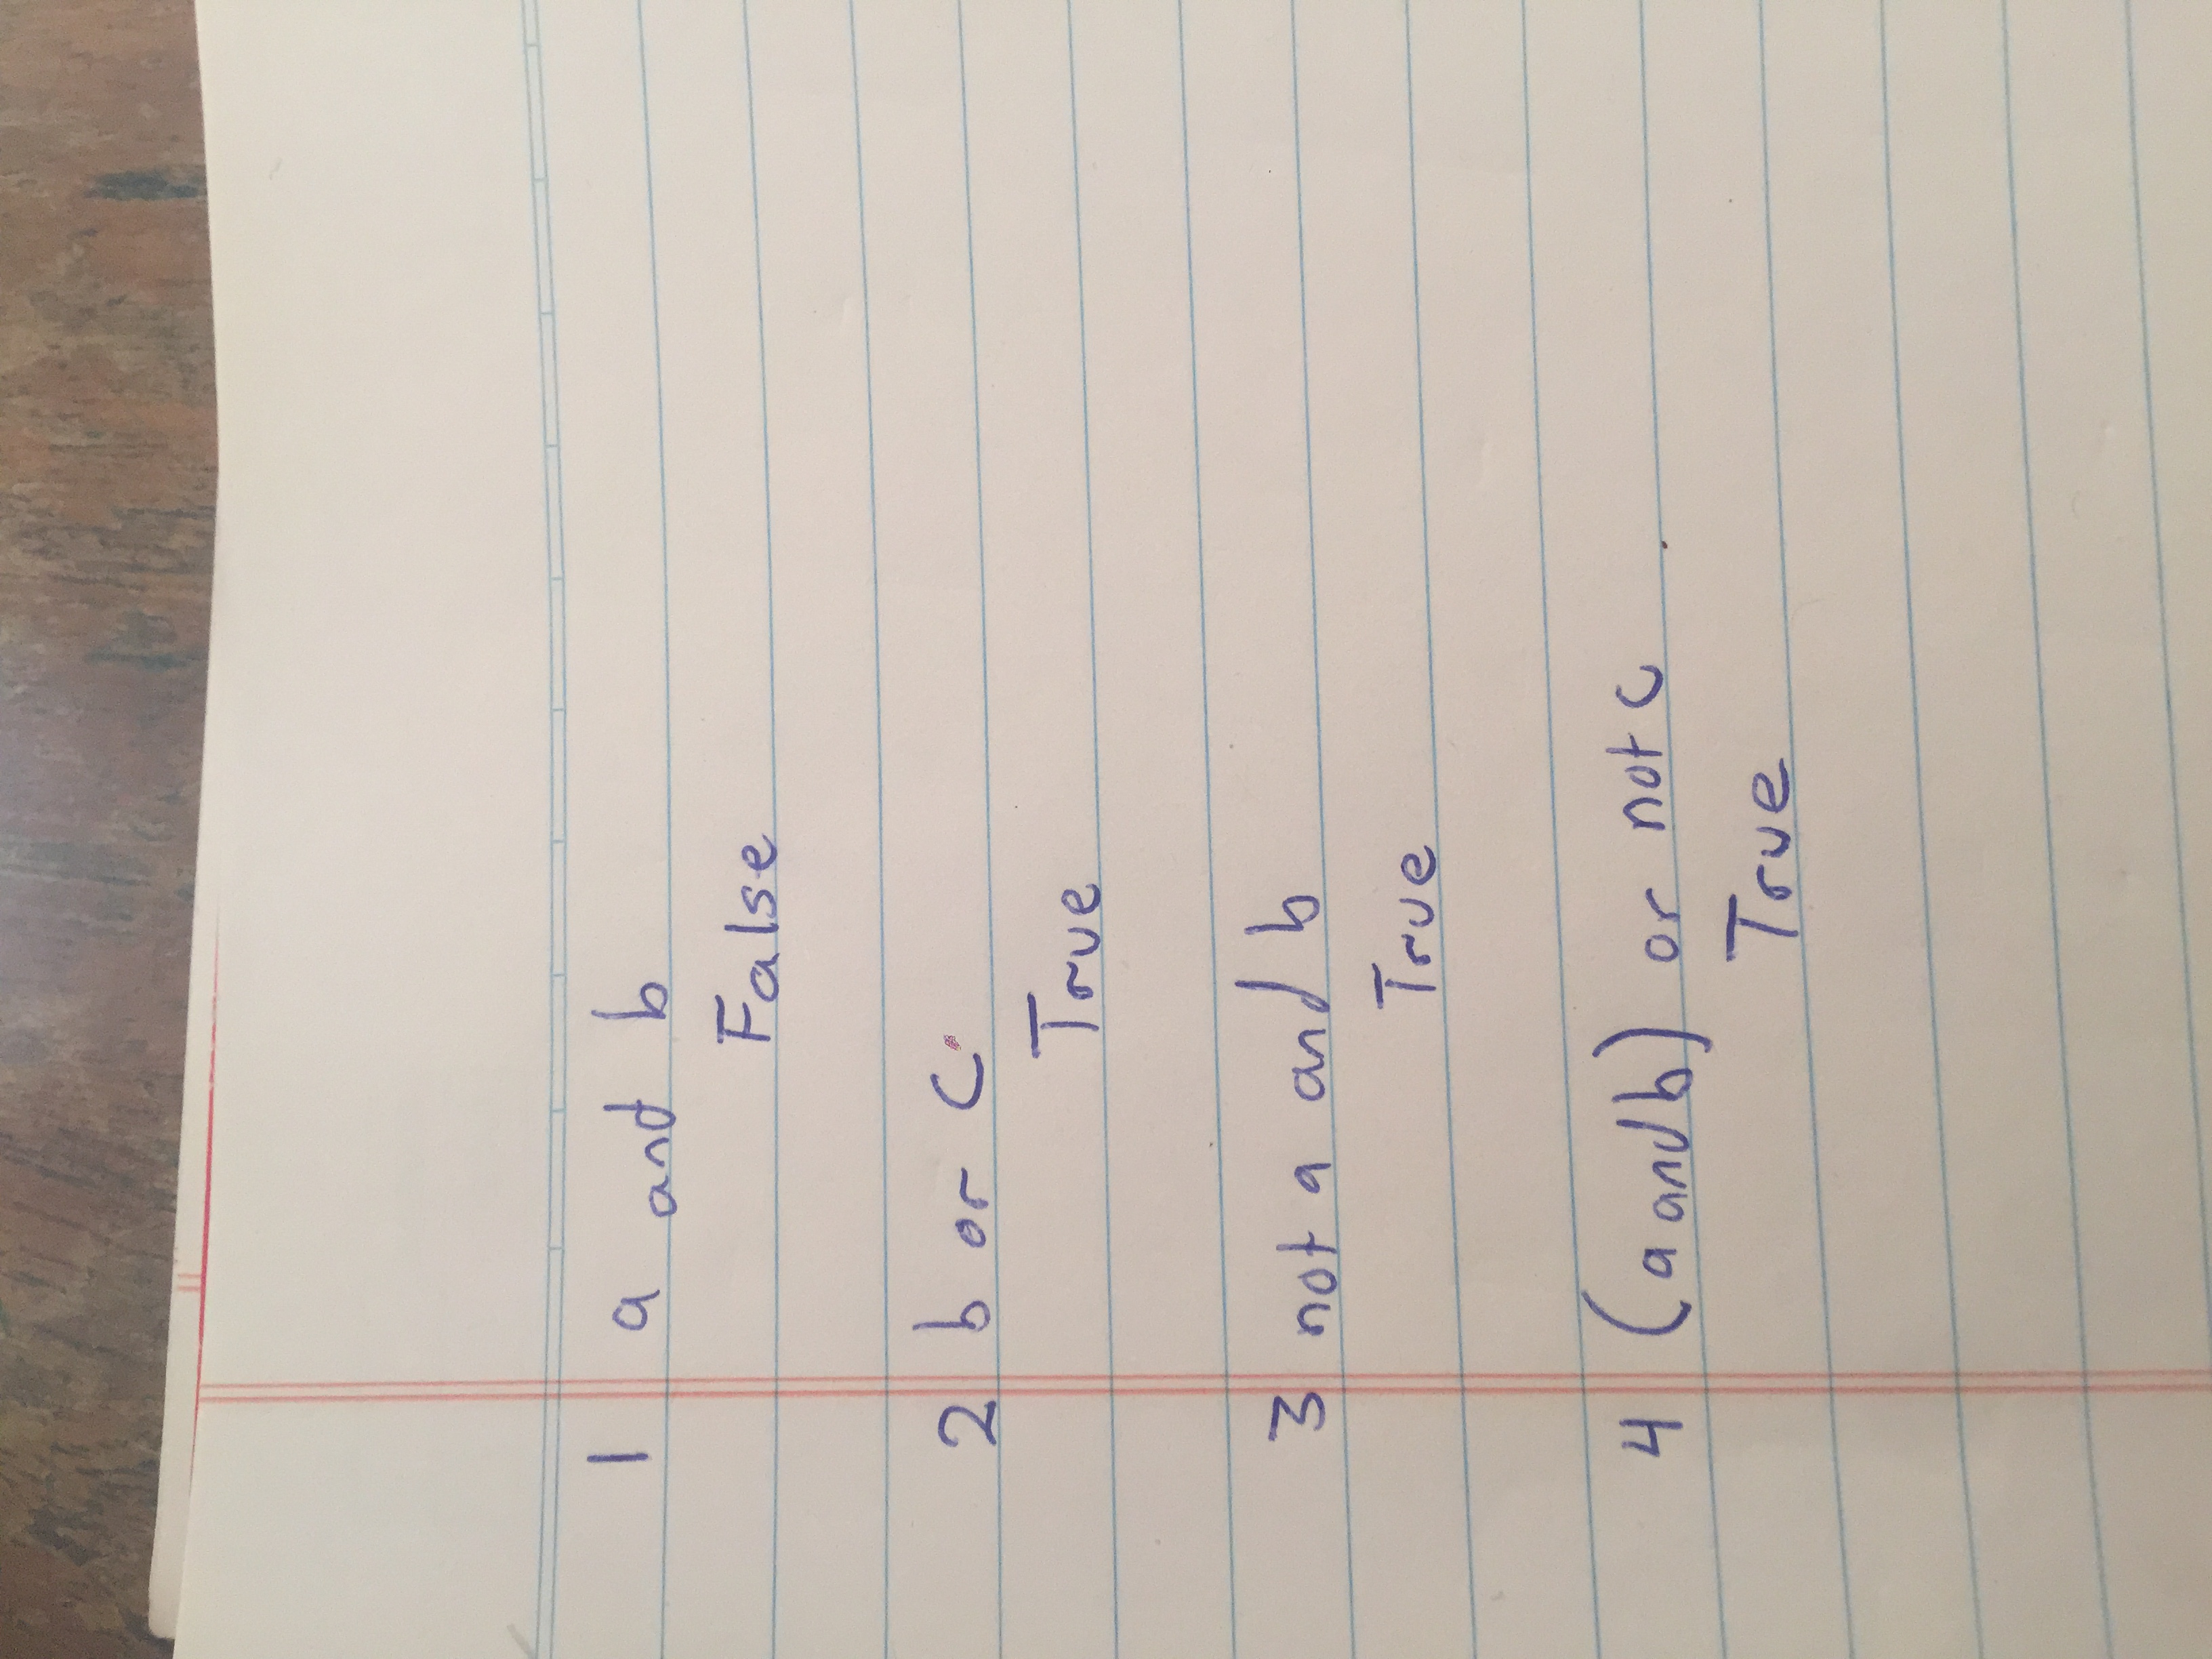 1 a and b
False
2 b or c
True
3 not a and b
True
4 (a and b) or not c
True